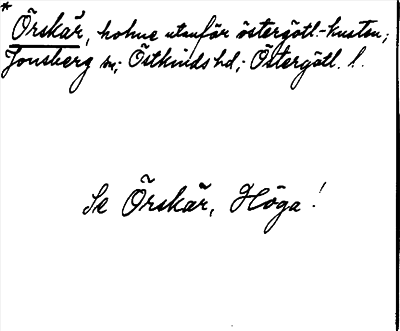 * Örskär, holme utanför östergötl.-kusten;
Jonsberg sn; Östkinds hd; Östergötl. l.
Se Örskär, Höga!